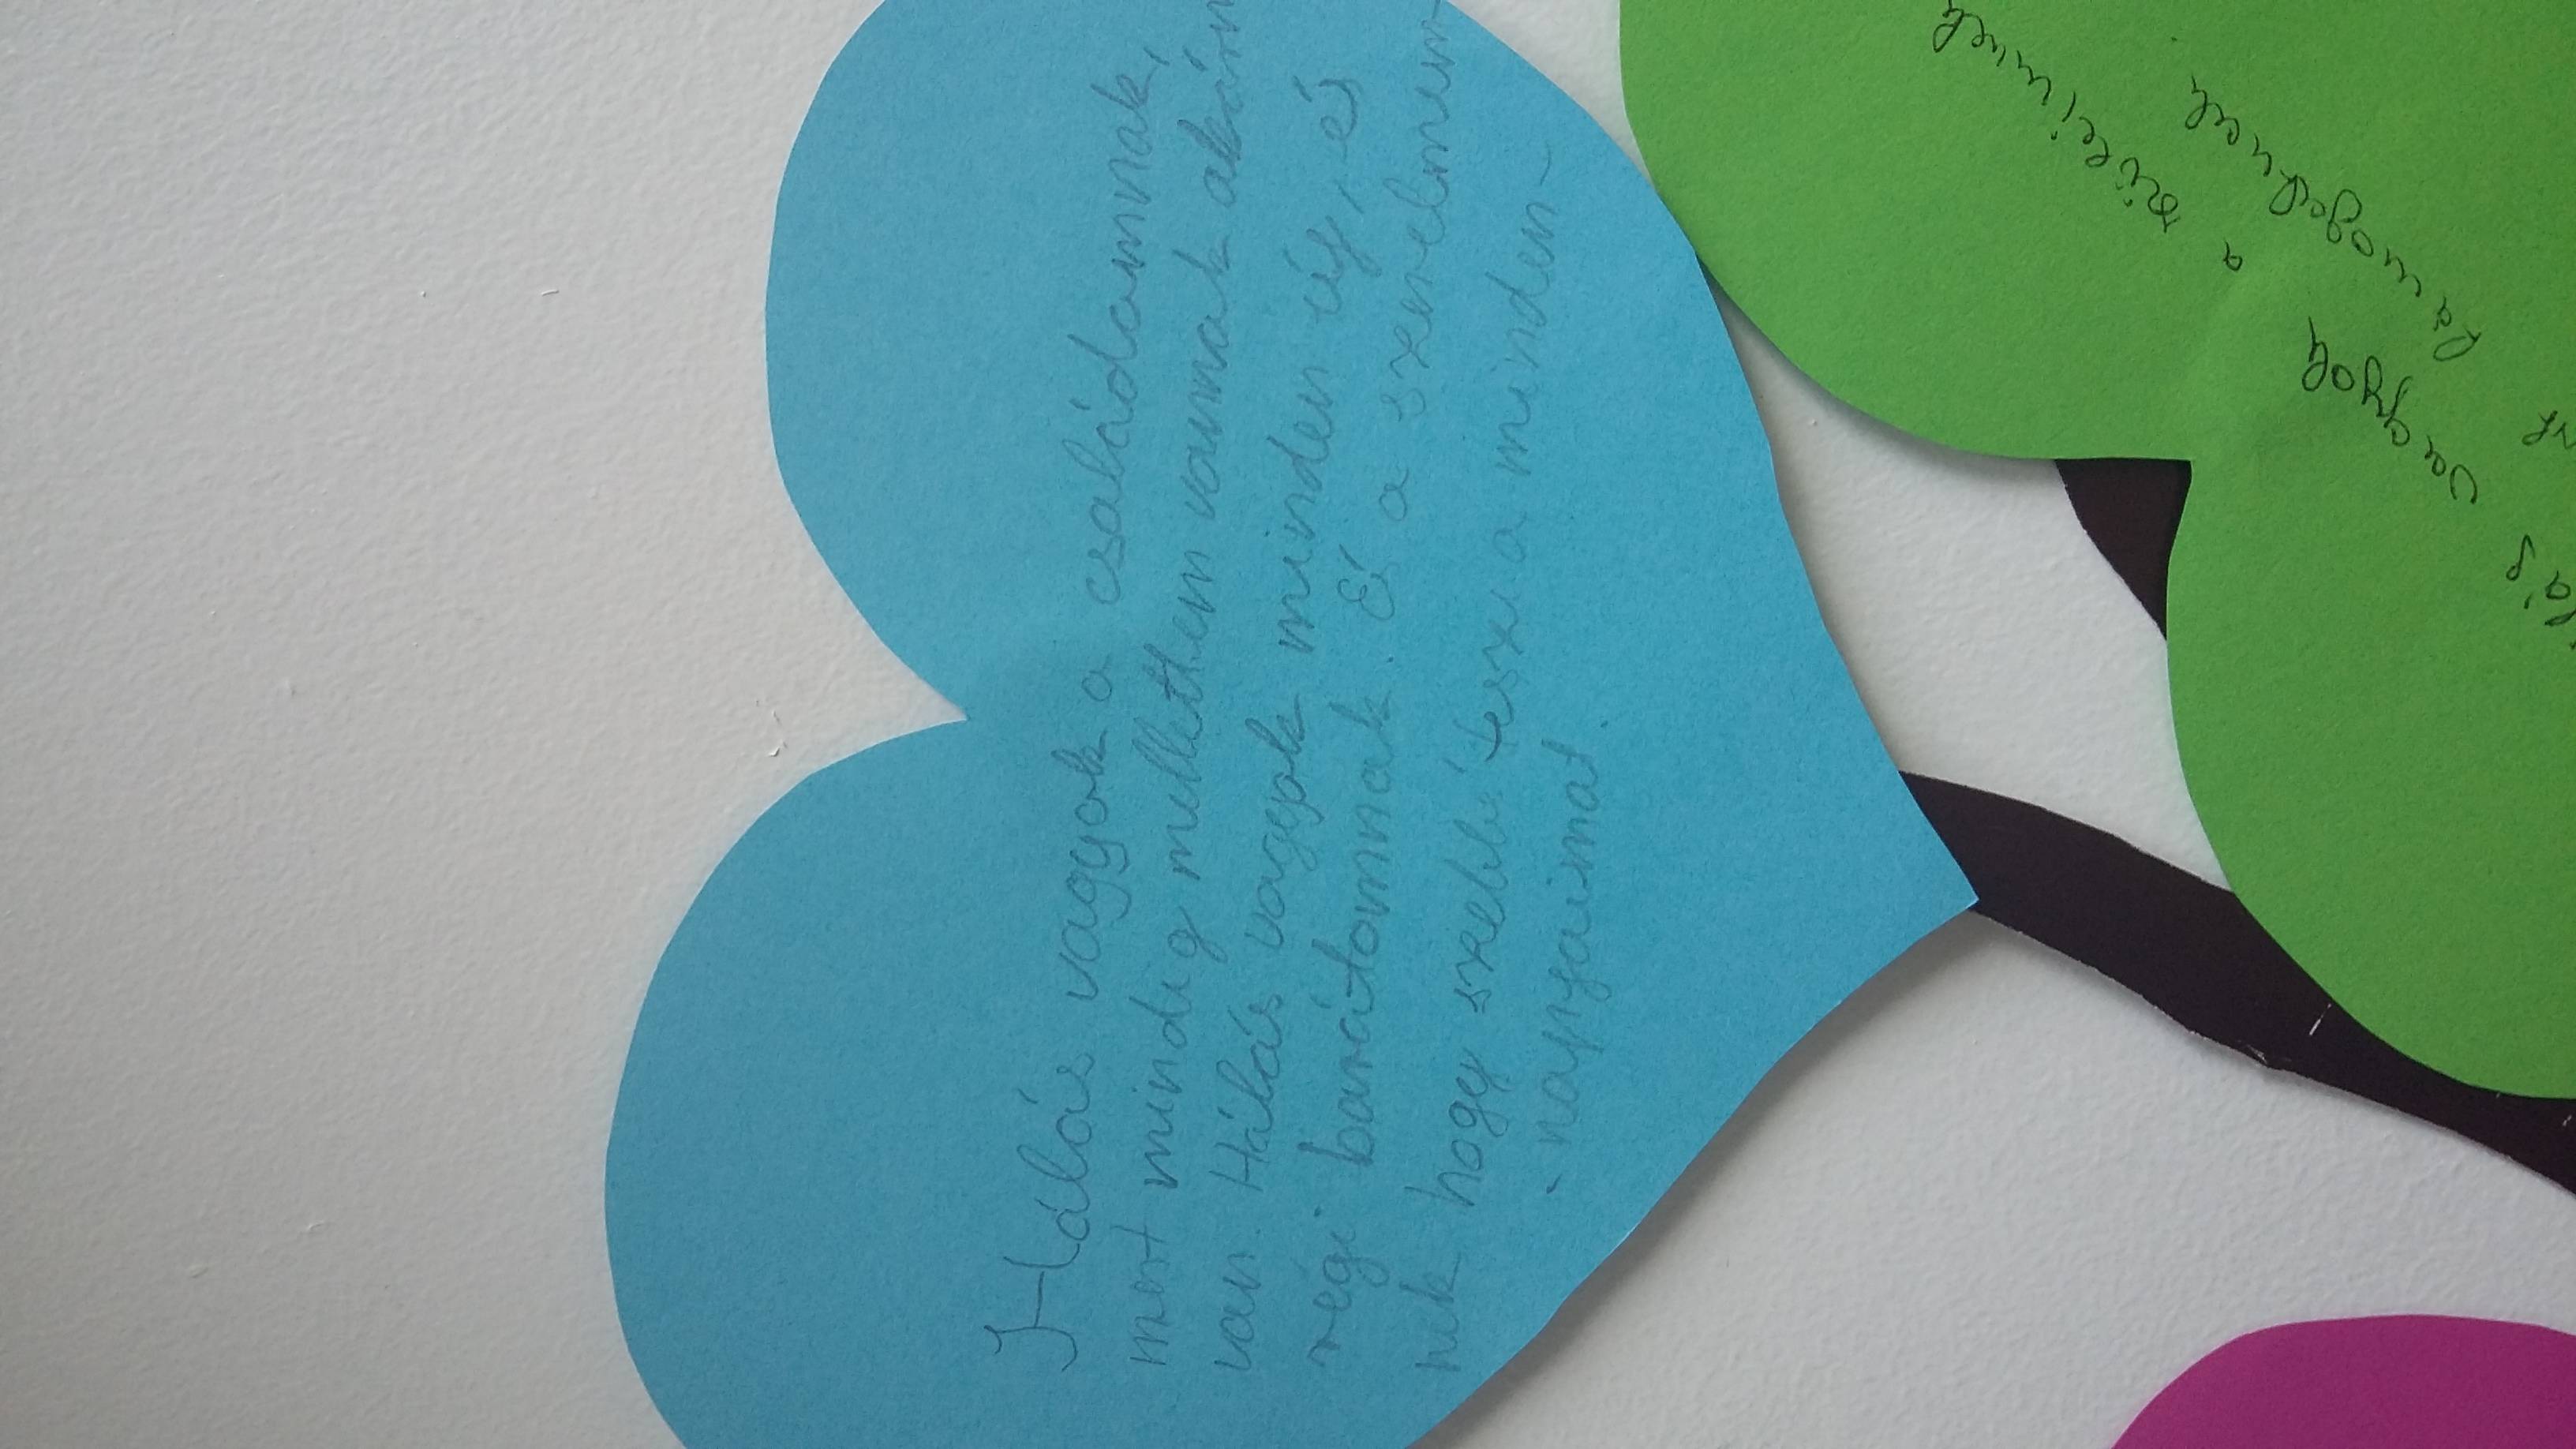 Hálás vagyok a családomnak,
mert mindig mellettem vannak
van. Hálás vagyok minden új, és
régi barátomnak. És a szerelmem-
nek hogy szebbé teszi a minden-
-napjaimat.
vagyok
a szüleimnek
támogatnak